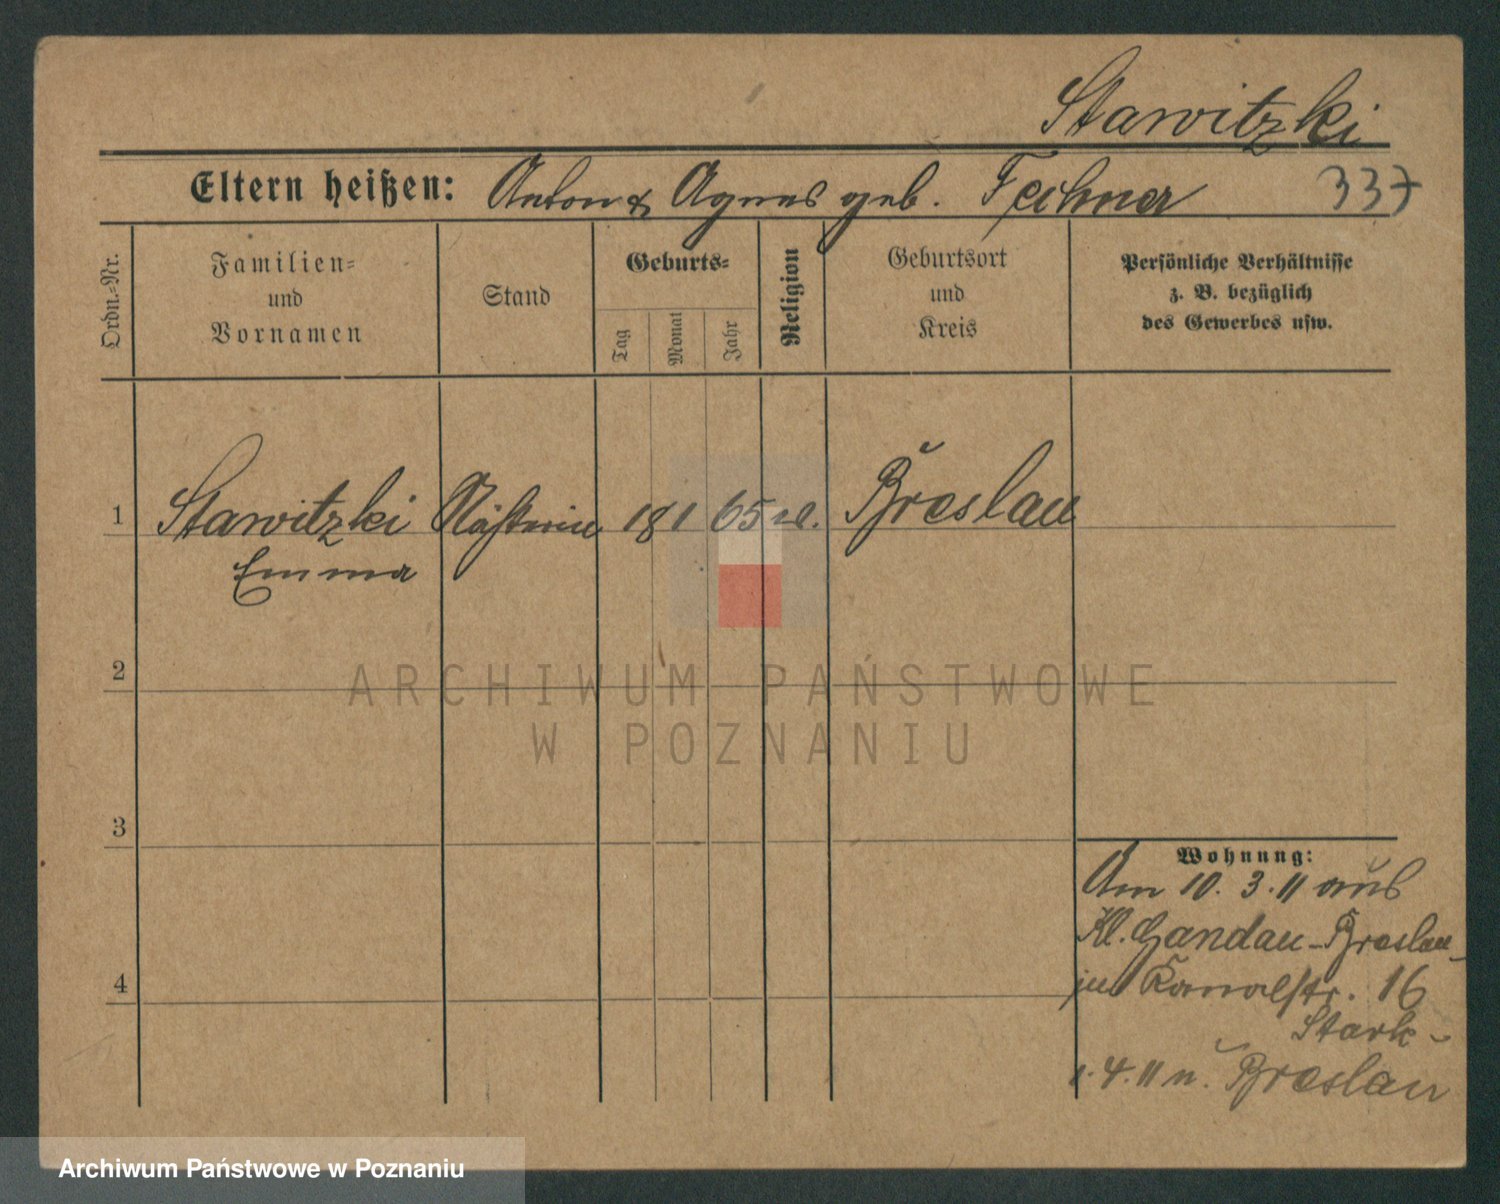 Stawitzki
Eltern heißen: Anton & Agnes geb. Fechner 337
Ordn.-Nr.
Familien-
und
Vornamen
Stand
Geburts-
Tag
Monat
Jahr
Religion
Geburtsort
und
Kreis
Persönliche Verhältnisse
z. B. bezüglich
des Gewerbes usw.
1 Stawitzki Näherin 18 1 65 Breslau
Emma
2
3
4
Wohnung:
Am 10. 3. 11 aus
Kl. Gandau-Breslau
Kanalstr. 16
Stark
1. 4. 11 n. Breslau
ARCHIWUM PAŃSTWOWE
W POZNANIU
Archiwum Państwowe w Poznaniu